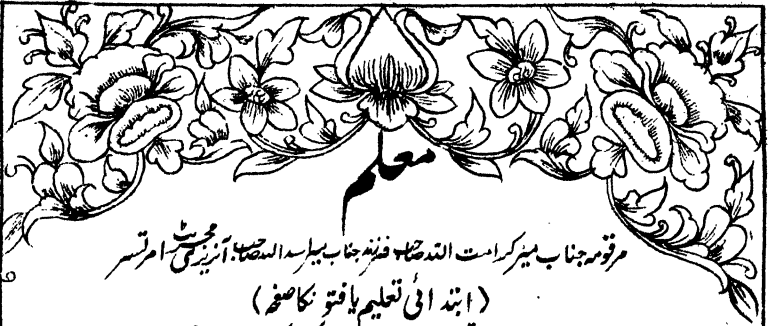 معلم
مرقومہ جناب میر کرامت اللہ صاحب فرزند جناب میر اسد اللہ صاحب آنریری مجسٹریٹ امرتسر
(ابتدائی تعلیم یافتوں کا صفحہ)